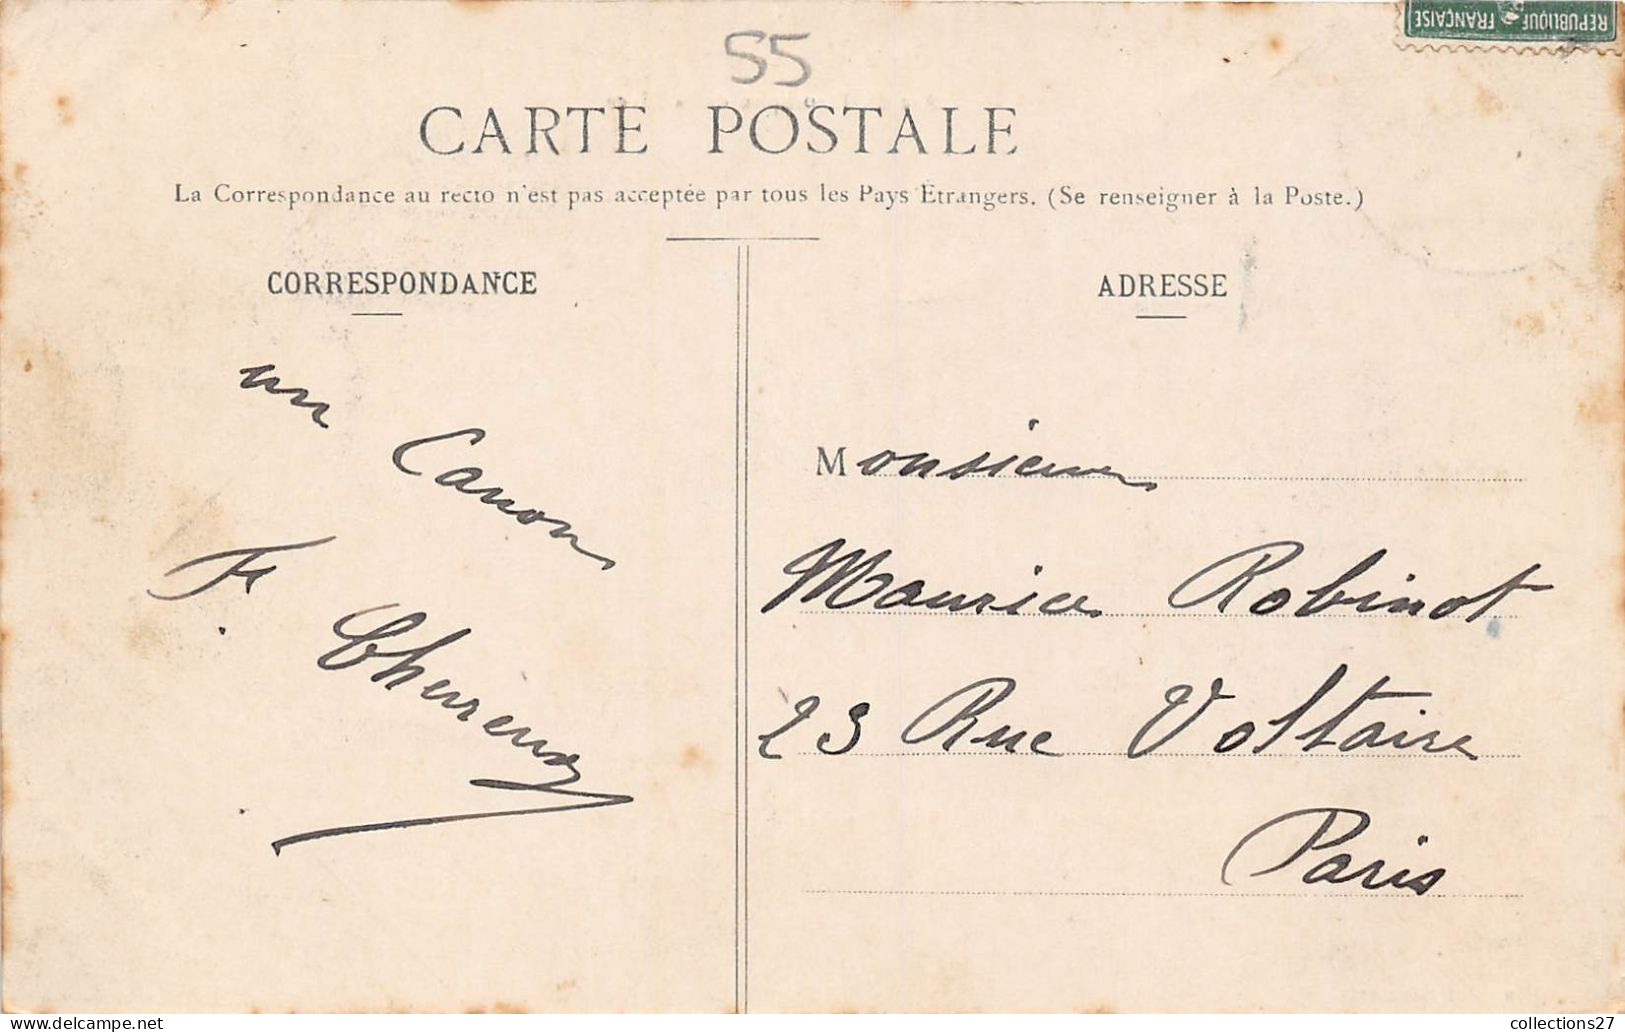 RÉPUBLIQUE FRANÇAISE
55
CARTE POSTALE
La Correspondance au recto n'est pas acceptée par tous les Pays Étrangers. (Se renseigner à la Poste.)
CORRESPONDANCE
un Canon
F.
ADRESSE
Monsieur
Maurice Robinot
23 Rue Voltaire
Paris
www.delcampe.net
collections27